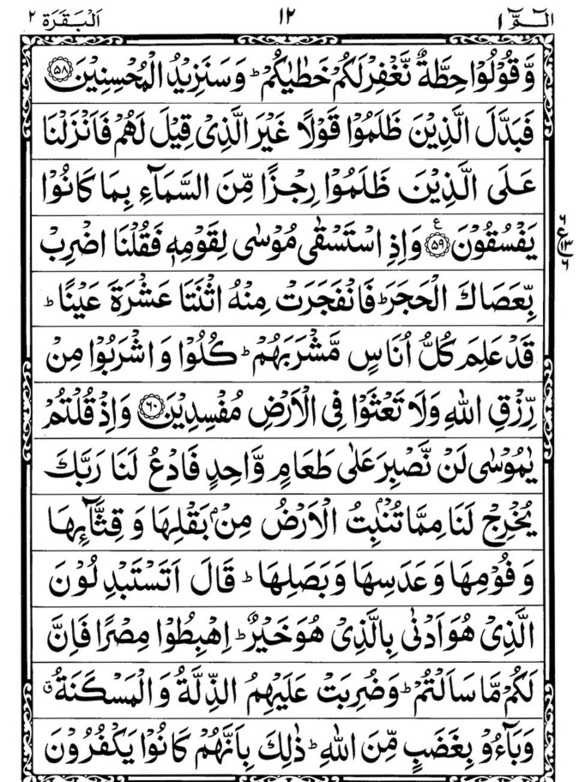 الٓمّٓ ١ ١٢ اَلْبَقَرَة ٢
وَّ قُوْلُوْا حِطَّةٌ نَّغْفِرْ لَكُمْ خَطٰيٰكُمْ ؕ وَ سَنَزِيْدُ الْمُحْسِنِيْنَ ﴿۵۸﴾
فَبَدَّلَ الَّذِيْنَ ظَلَمُوْا قَوْلًا غَيْرَ الَّذِيْ قِيْلَ لَهُمْ فَاَنْزَلْنَا
عَلَى الَّذِيْنَ ظَلَمُوْا رِجْزًا مِّنَ السَّمَآءِ بِمَا كَانُوْا
يَفْسُقُوْنَ ﴿۵۹﴾ ع وَ اِذِ اسْتَسْقٰى مُوْسٰى لِقَوْمِهٖ فَقُلْنَا اضْرِبْ
٦ ع ١٣ ٦
بِّعَصَاكَ الْحَجَرَ ؕ فَانْفَجَرَتْ مِنْهُ اثْنَتَا عَشْرَةَ عَيْنًا ؕ
قَدْ عَلِمَ كُلُّ اُنَاسٍ مَّشْرَبَهُمْ ؕ كُلُوْا وَ اشْرَبُوْا مِنْ
رِّزْقِ اللّٰهِ وَلَا تَعْثَوْا فِى الْاَرْضِ مُفْسِدِيْنَ ﴿۶۰﴾ وَ اِذْ قُلْتُمْ
يٰمُوْسٰى لَنْ نَّصْبِرَ عَلٰى طَعَامٍ وَّاحِدٍ فَادْعُ لَنَا رَبَّكَ
يُخْرِجْ لَنَا مِمَّا تُنْۢبِتُ الْاَرْضُ مِنْۢ بَقْلِهَا وَ قِثَّآئِهَا
وَ فُوْمِهَا وَ عَدَسِهَا وَ بَصَلِهَا ؕ قَالَ اَتَسْتَبْدِلُوْنَ
الَّذِيْ هُوَ اَدْنٰى بِالَّذِيْ هُوَ خَيْرٌ ؕ اِهْبِطُوْا مِصْرًا فَاِنَّ
لَكُمْ مَّا سَاَلْتُمْ ؕ وَ ضُرِبَتْ عَلَيْهِمُ الذِّلَّةُ وَ الْمَسْكَنَةُ ۗ
وَ بَآءُوْ بِغَضَبٍ مِّنَ اللّٰهِ ؕ ذٰلِكَ بِاَنَّهُمْ كَانُوْا يَكْفُرُوْنَ